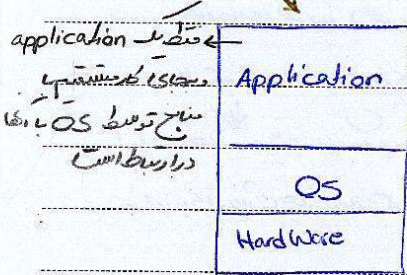 فقط یک application
و بجای کار مستقیم با
منابع توسط OS با آنها
در ارتباط است
Application
OS
HardWare